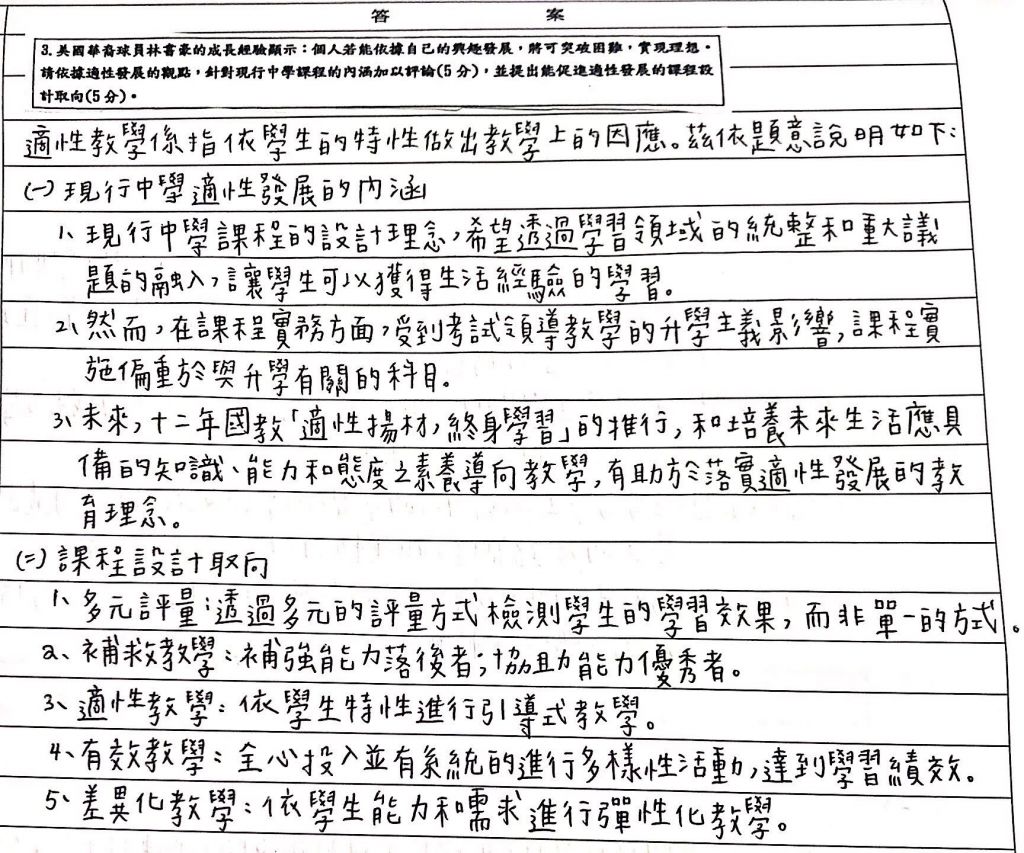 答 案
3.美國華裔球員林書豪的成長經驗顯示：個人若能依據自己的興趣發展，將可突破困難，實現理想。
請依據適性發展的觀點，針對現行中學課程的內涵加以評論(5分)，並提出能促進適性發展的課程設
計取向(5分)。
適性教學係指依學生的特性做出教學上的因應。茲依題意說明如下：
(一)現行中學適性發展的內涵
1、現行中學課程的設計理念，希望透過學習領域的統整和重大議
題的融入，讓學生可以獲得生活經驗的學習。
2、然而，在課程實務方面，受到考試領導教學的升學主義影響，課程實
施偏重於與升學有關的科目。
3、未來，十二年國教「適性揚材，終身學習」的推行，和培養未來生活應具
備的知識、能力和態度之素養導向教學，有助於落實適性發展的教
育理念。
(二)課程設計取向
1、多元評量：透過多元的評量方式檢測學生的學習效果，而非單一的方式。
2、補救教學：補強能力落後者；協助能力優秀者。
3、適性教學：依學生特性進行引導式教學。
4、有效教學：全心投入並有系統的進行多樣性活動，達到學習績效。
5、差異化教學：依學生能力和需求進行彈性化教學。